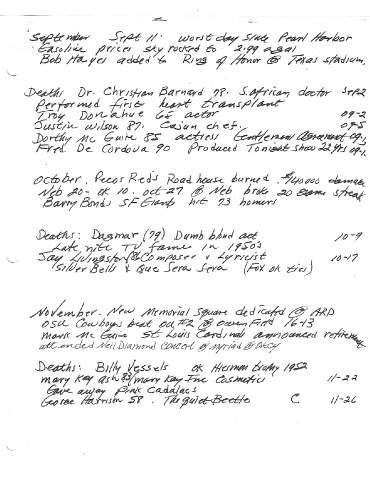 September Sept 11. worst day since Pearl Harbor
Gasoline prices sky rocked to 2.99 a gal
Bob Hayes added to Ring of Honor @ Texas stadium.
Deaths Dr. Christian Barnard 78. S. african doctor Sep 2
Performed first heart transplant
Troy Donahue 65 actor 09-2
Justin Wilson 87. Cajun chef. 09-5
Dorthy Mc Guire 85 actress Gentlemens Agreement 09-
Fred De Cordova 90 Produced Tonight show 22 yrs 09-
October. Pecos Red's Road house burned. $140000 damage
Neb 20- ok 10. oct-27 @ Neb broke 20 game streak
Barry Bonds SF Giants hit 73 homers
Deaths: Dagmar (79) Dumb blond act 10-9
Late nite TV fame in 1950's
Jay Livingston Composer & Lyricist 10-17
Silver Bells & Que Sera Sera
November. New Memorial Square dedicated @ ARD
OSU Cowboys beat ou #2 @ Owen Field 16-13
Mark Mc Guire St. Louis Cardinal announced retirement
attended Neil Diamond Concert @ Myriad @
Deaths: Billy Vessels ok Hiesman trophy 1952
Mary Kay ash 83/Mary Kay Inc Cosmetics 11-22
Gave away Pink Cadalacs
George Harrison 58. The quiet Beetle C 11-26